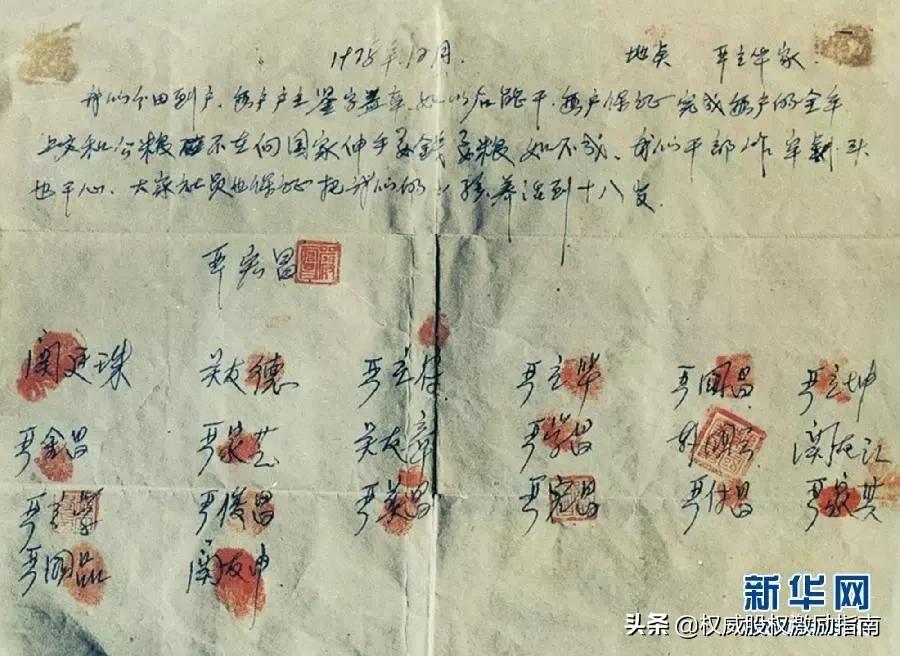 1978年12月. 地点 严立华家.
我们分田到户,每户户主鉴字盖章,如以后能干,每户保证完成每户的全年
上交和公粮不在向国家伸手要钱要粮如不成,我们干部作牢刹头
也干心,大家社员也保证把我们的小孩养活到十八岁.
严宏昌
关廷珠 关友德 严立符 严立华 严国昌 严立坤
严金昌 严家芝 关友章 严学昌 韩国云 关友江
严立学 严俊昌 严美昌 严宏昌 严付昌 严家其
严国品 关友申
新华网
头条 @权威股权激励指南